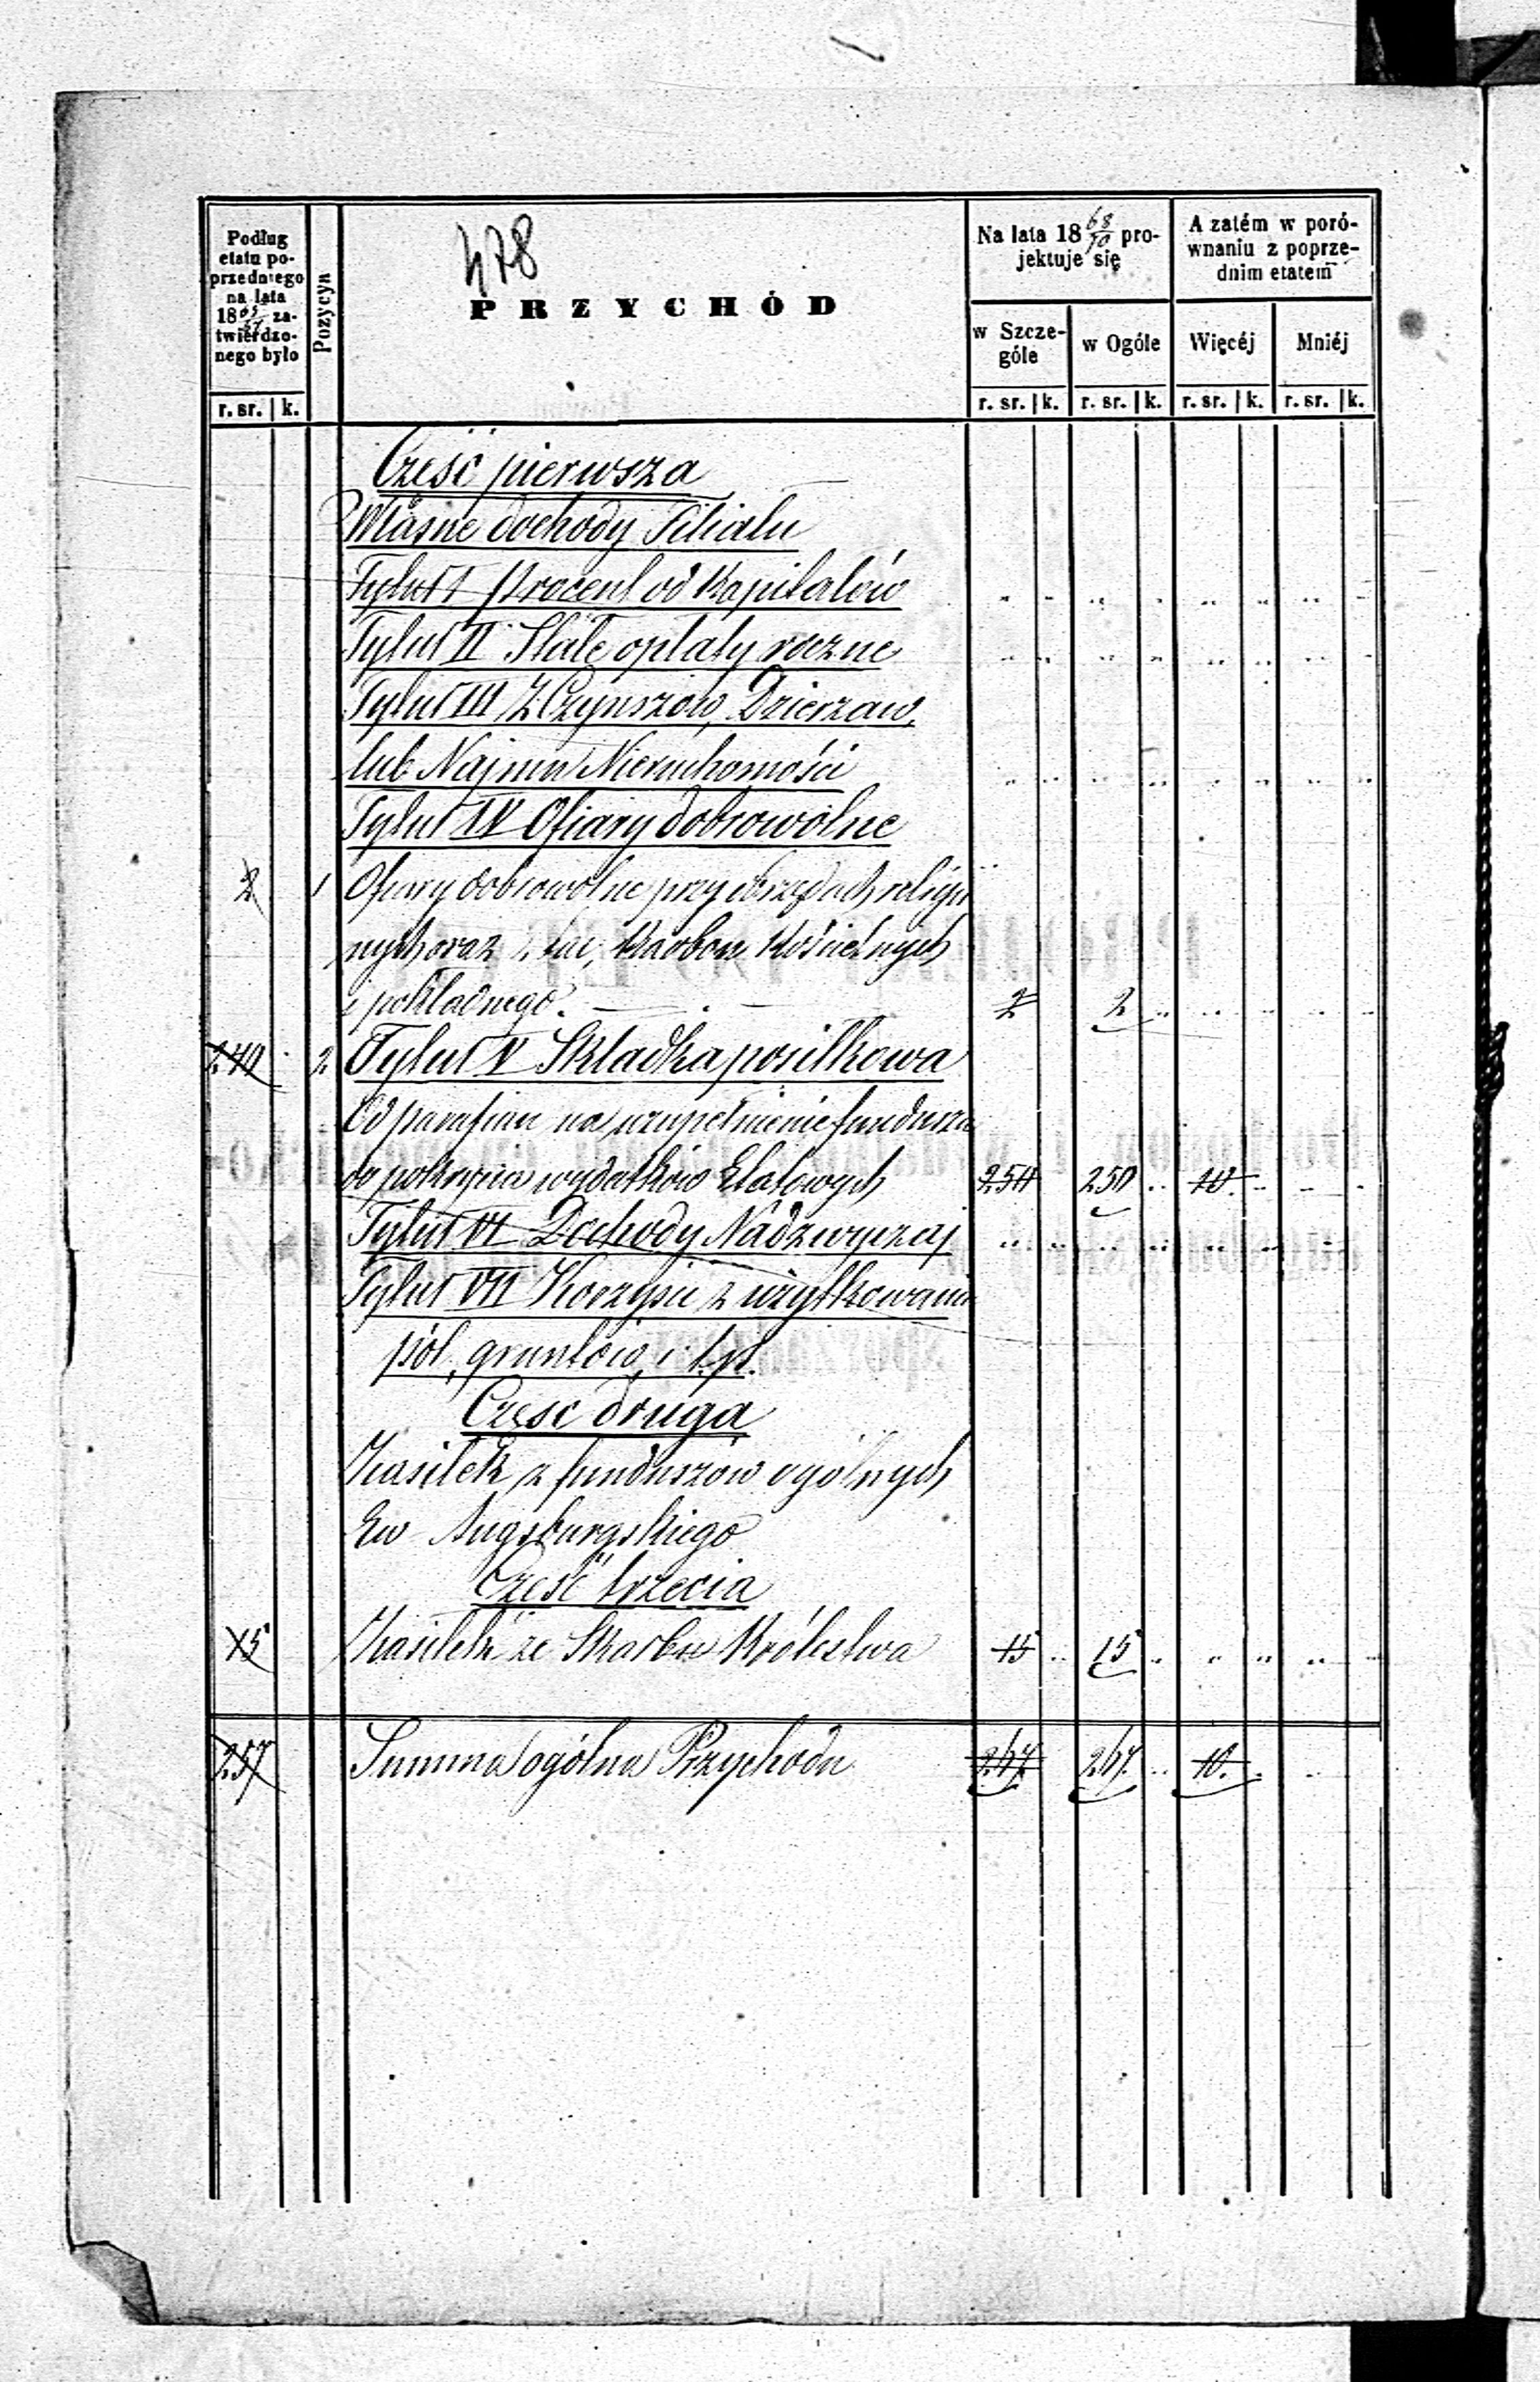 478
PRZYCHÓD
Podług
etatu po-
przedniego
na lata
1865/67 za-
twierdzo-
nego było
r. sr. k.
Pozycya
Na lata 1868/70 pro-
jektuje się
w Szcze-
góle
w Ogóle
r. sr. k. r. sr. k.
A zatém w poró-
wnaniu z poprze-
dnim etatem
Więcéj Mniéj
r. sr. k. r. sr. k.
Część pierwsza
Własne dochody Filiału
Tytuł I Procent od Kapitałów
Tytuł II Stałe opłaty roczne
Tytuł III Z Czynszów, Dzierzaw,
lub Najmu Nieruchomości
Tytuł IV Ofiary dobrowolne
2 1 Ofiary dobrowolne przy obrzędach religij
nych oraz z tac, Karbon Kościelnych
i pokładnego. 2 2
240 2 Tytuł V Składka posiłkowa
Od parafian na uzupełnienie funduszu
do pokrycia wydatków Etatowych 250 250 10
Tytuł VI Dochody Nadzwyczaj
Tytuł VII Korzyści z użytkowania
pól, gruntów i t.p.
Część druga
Zasiłek z funduszów ogólnych
Ew Augsburgskiego
Część trzecia
15 Zasiłek ze Skarbu Królestwa 15 15
257 Summa ogólna Przychodu 267 267 10